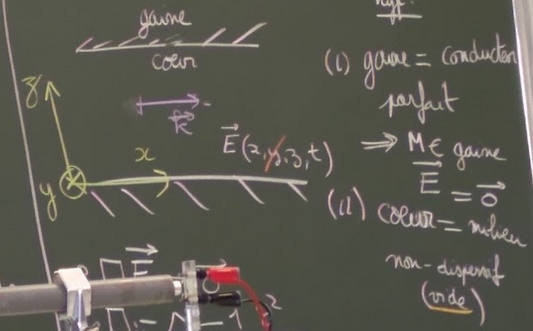 gaine
coeur
z
k
x
E(x,y,z,t)
y
hyp:
(i) gaine = conducteur
parfait
⇒ M ∈ gaine
E = 0
(ii) coeur = milieu
non-dispersif
(vide)
E
2